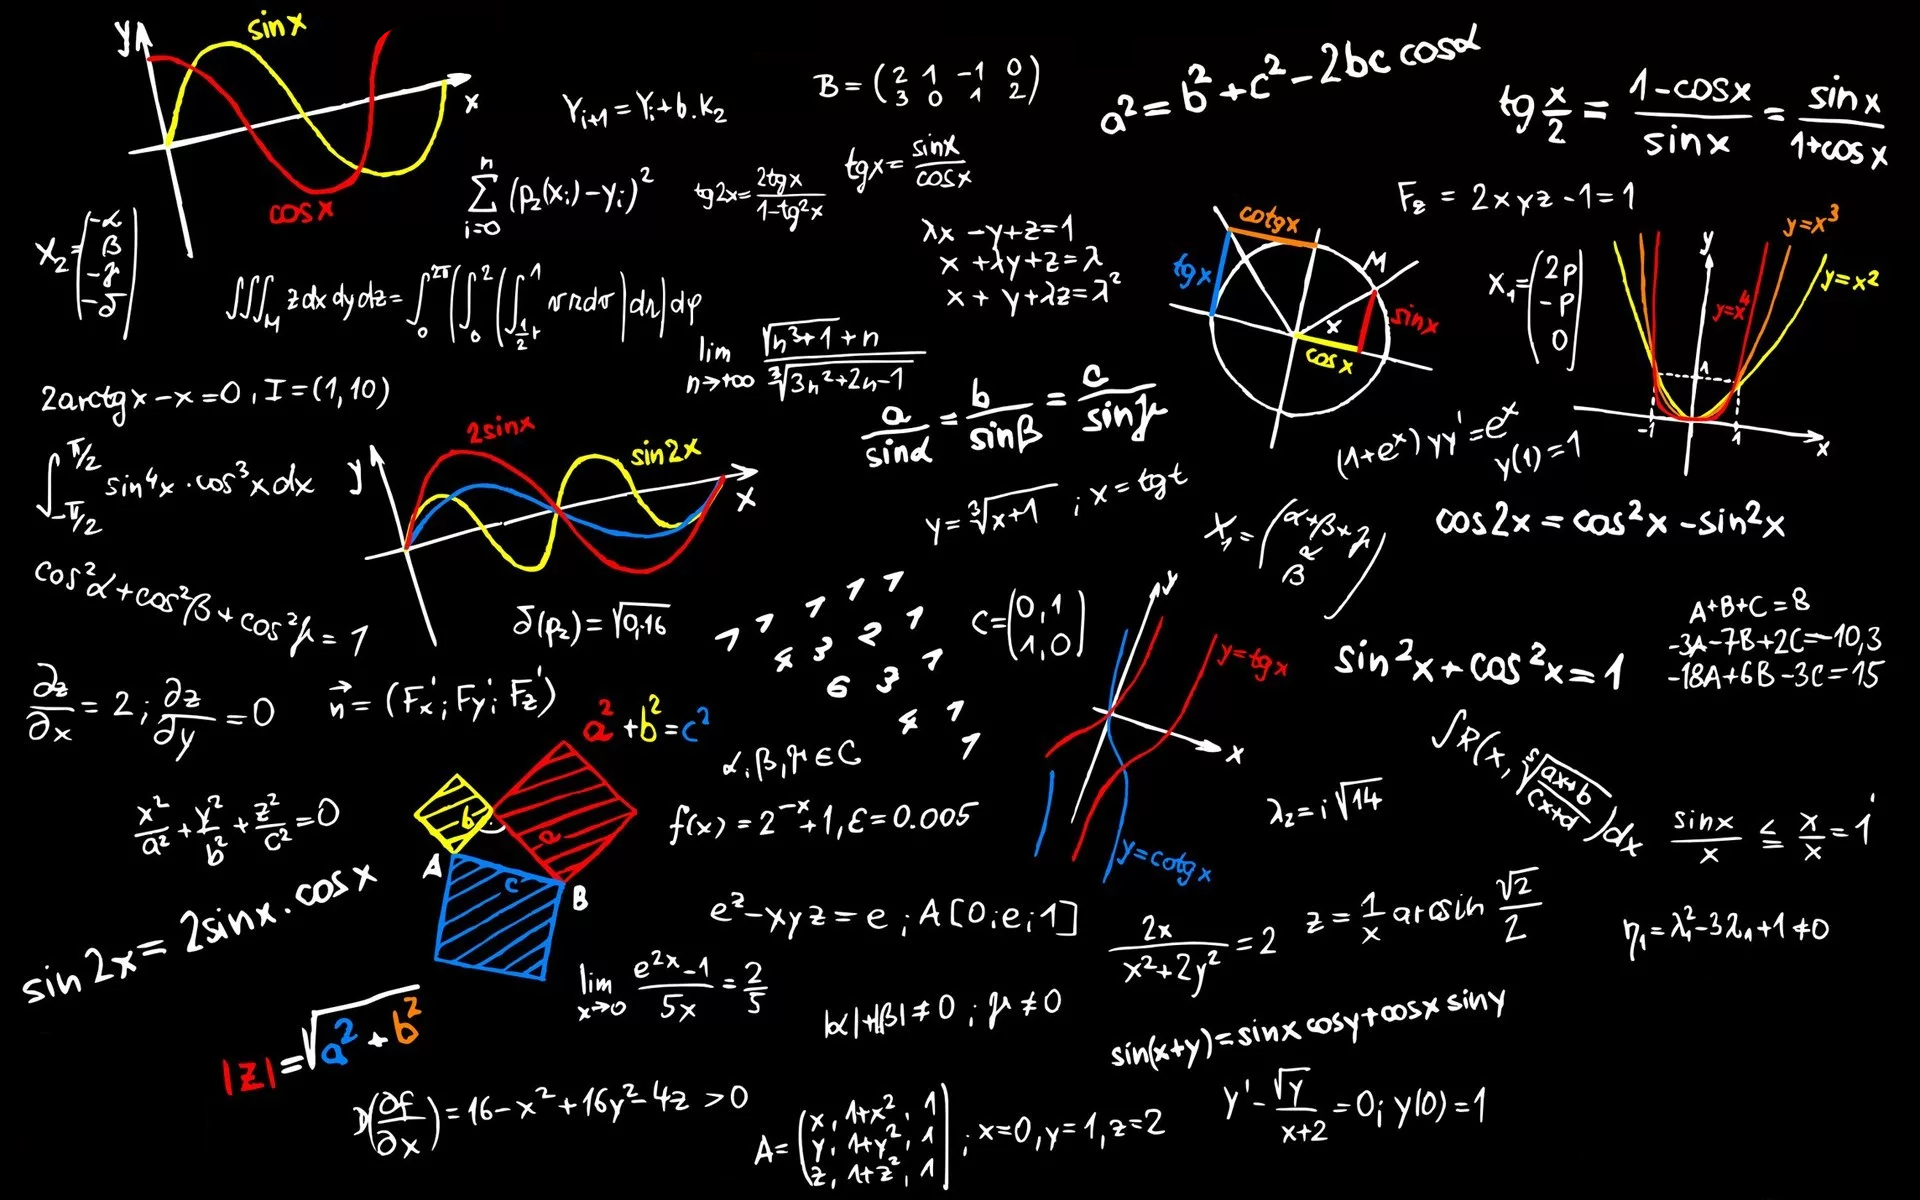 y
sin x
x
cos x
Y_{i+1} = Y_i + b.K_2
B = (2 1 -1 0
3 0 1 2)
a² = b² + c² - 2bc cosα
tg x/2 = (1-cosx)/(sinx) = (sinx)/(1+cosx)
∑_{i=0}^{n} (p_2(x_i) - y_i)²
tg2x = (2tgx)/(1-tg²x)
tgx = (sinx)/(cosx)
F_z = 2xyz - 1 = 1
X_2 = (-α
β
-γ
-δ)
λx - y + z = 1
x + λy + z = λ
x + y + λz = λ²
cotgx
tgx
M
sinx
x
cosx
X_1 = (2p
-p
0)
y
y=x³
y=x²
y=x⁴
1
-1
1
x
∭_M z dx dy dz = ∫_0^{2π} (∫_0^2 (∫_{½r}^1 vr dv | dr | dφ
lim_{n→+∞} (√(n³+1) + n)/(∛(3n²+2n-1))
2arctgx - x = 0, I = (1,10)
a/sinα = b/sinβ = c/sinγ
(1+e^x) yy' = e^x
y(1) = 1
∫_{-π/2}^{π/2} sin⁴x · cos³x dx
y
2sinx
sin2x
x
y = ∛(x+1) ; x = tgt
X_1 = (α+β+γ
α
β)
cos2x = cos²x - sin²x
cos²α + cos²β + cos²γ = 1
δ(p_2) = √0,16
1 1 1 1 1
4 3 2 1
6 3 1
4 1
1
C = (0,1
1,0)
y
y=tgx
x
y=cotgx
sin²x + cos²x = 1
A+B+C = 8
-3A-7B+2C = -10,3
-18A+6B-3C = 15
∂z/∂x = 2 ; ∂z/∂y = 0
n⃗ = (F_x'; F_y'; F_z')
a² + b² = c²
b
a
A
c
B
α, β, γ ∈ C
∫R(x, ⁵√((ax+b)/(cx+d))) dx
x²/a² + y²/b² + z²/c² = 0
f(x) = 2^{-x} + 1, ε = 0.005
λ_2 = i√14
sinx/x ≤ x/x = 1
sin2x = 2sinx.cosx
e^z - xyz = e ; A[0;e;1]
2x/(x²+2y²) = 2
z = 1/x arcsin √2/2
η_1 = λ_1² - 3λ_1 + 1 ≠ 0
lim_{x→0} (e^{2x}-1)/5x = 2/5
|α|+|β| ≠ 0 ; γ ≠ 0
sin(x+y) = sinx cosy + cosx siny
|z| = √(a² + b²)
(∂f/∂x) = 16 - x² + 16y² - 4z > 0
A = (x, 1+x², 1
y, 1+y², 1
z, 1+z², 1) ; x=0, y=1, z=2
y' - √y/(x+2) = 0; y(0) = 1